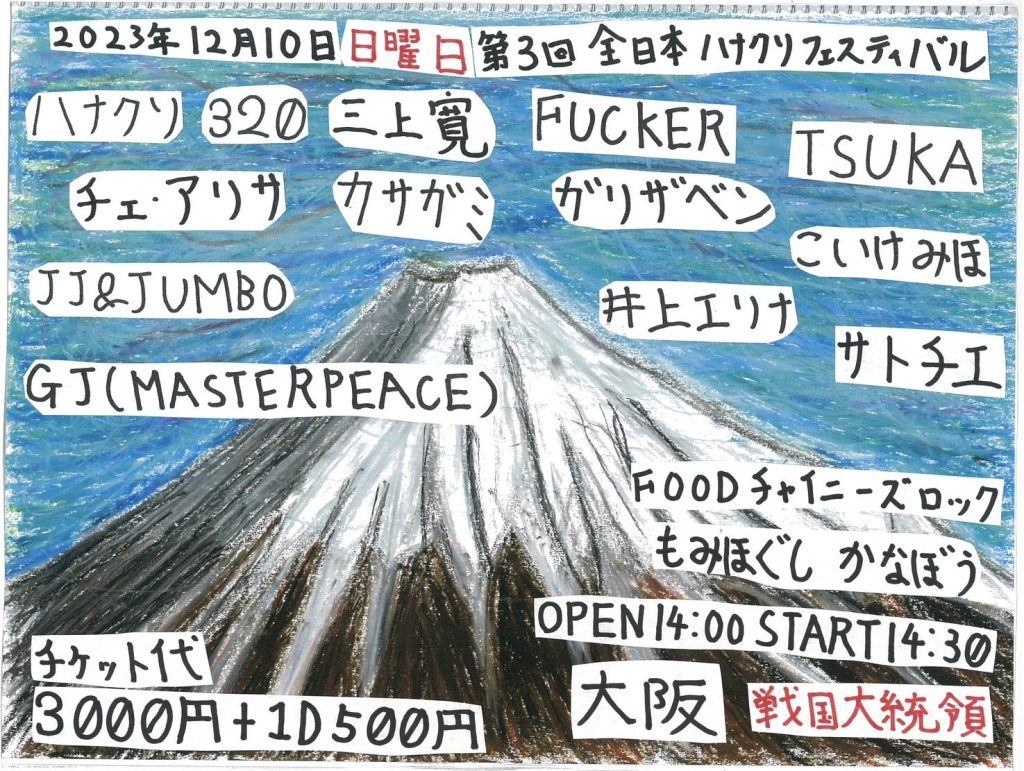 2023年12月10日 日曜日 第3回 全日本 ハナクソフェスティバル
ハナクソ 320 三上寛 FUCKER TSUKA
チェ・アリサ カサガミ ガリザベン
こいけみほ
JJ&JUMBO 井上エリナ
サトチエ
GJ(MASTERPEACE)
FOODチャイニーズロック
もみほぐし かなぼう
OPEN14:00 START14:30
チケット代
3000円+1D500円
大阪 戦国大統領